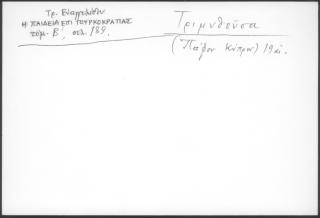 Τρ. Ευαγγελίδου
Η ΠΑΙΔΕΙΑ ΕΠΙ ΤΟΥΡΚΟΚΡΑΤΙΑΣ
τόμ. Β', σελ. 189.
Τριμυθοῦσα
(Πάφου Κύπρου) 19 αἰ.